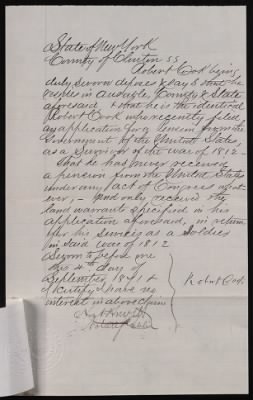 State of New York
County of Clinton SS
Robert Cook being
duly sworn deposes & says that he
resides in Ausable, County & State
aforesaid & that he is the identical
Robert Cook who recently filed
an application for a Pension from the
Government of the United States
as a Survivor of the war of 1812 -
That he has never received
a pension from the United States
under any act of Congress what
ever, - and only received the
land warrants specified in his
application aforesaid, in return
for his services as a Soldier
in said war of 1812
Sworn to before me
this 4th day of
September 1871 &
I certify I have no
interest in above claim
Robert Cook